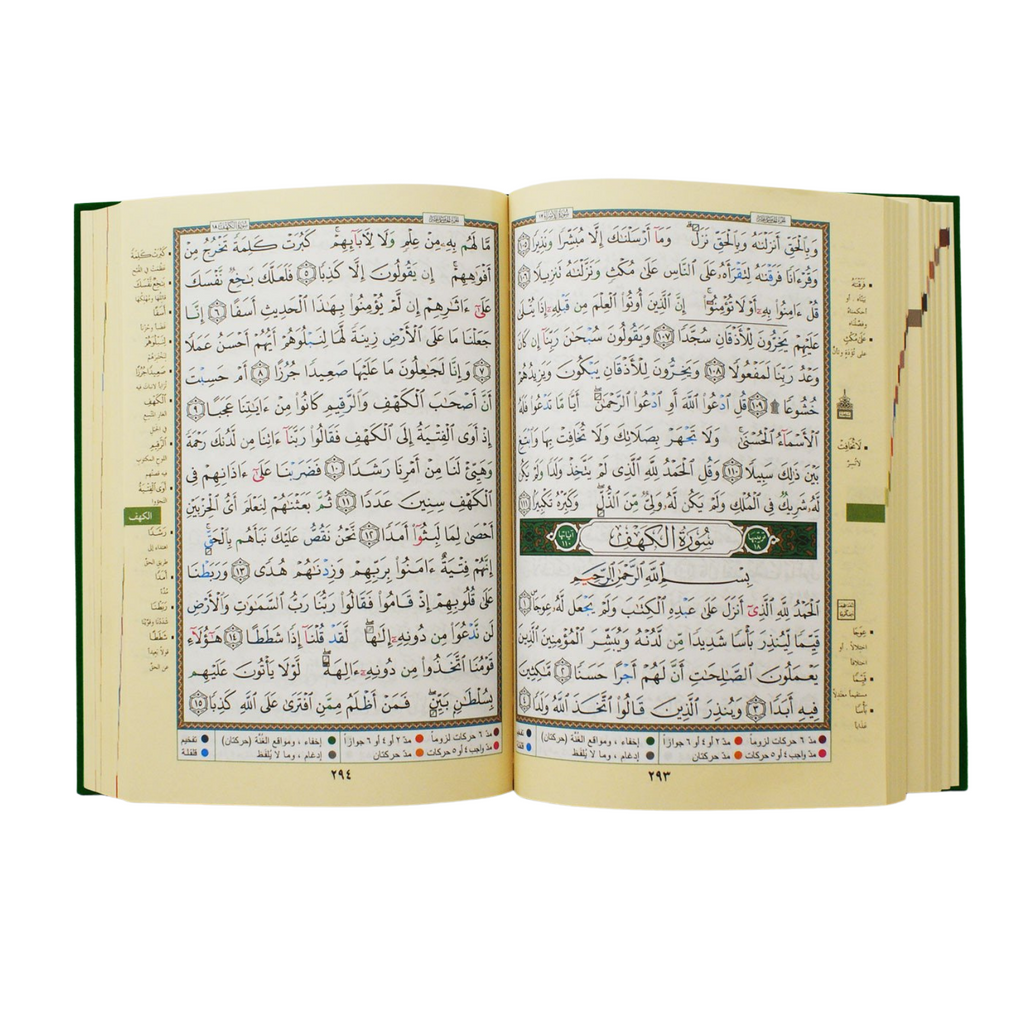 سُورَةُ الإِسْرَاء ١٧
وَبِٱلْحَقِّ أَنزَلْنَٰهُ وَبِٱلْحَقِّ نَزَلَ ۗ وَمَآ أَرْسَلْنَٰكَ إِلَّا مُبَشِّرًا وَنَذِيرًا ١٠٥
وَقُرْءَانًا فَرَقْنَٰهُ لِتَقْرَأَهُۥ عَلَى ٱلنَّاسِ عَلَىٰ مُكْثٍ وَنَزَّلْنَٰهُ تَنزِيلًا ١٠٦
قُلْ ءَامِنُوا۟ بِهِۦٓ أَوْ لَا تُؤْمِنُوٓا۟ ۚ إِنَّ ٱلَّذِينَ أُوتُوا۟ ٱلْعِلْمَ مِن قَبْلِهِۦٓ إِذَا يُتْلَىٰ
عَلَيْهِمْ يَخِرُّونَ لِلْأَذْقَانِ سُجَّدًا ١٠٧ وَيَقُولُونَ سُبْحَٰنَ رَبِّنَآ إِن كَانَ
وَعْدُ رَبِّنَا لَمَفْعُولًا ١٠٨ وَيَخِرُّونَ لِلْأَذْقَانِ يَبْكُونَ وَيَزِيدُهُمْ
خُشُوعًا ۩ ١٠٩ قُلِ ٱدْعُوا۟ ٱللَّهَ أَوِ ٱدْعُوا۟ ٱلرَّحْمَٰنَ ۖ أَيًّا مَّا تَدْعُوا۟ فَلَهُ
ٱلْأَسْمَآءُ ٱلْحُسْنَىٰ ۚ وَلَا تَجْهَرْ بِصَلَاتِكَ وَلَا تُخَافِتْ بِهَا وَٱبْتَغِ
بَيْنَ ذَٰلِكَ سَبِيلًا ١١٠ وَقُلِ ٱلْحَمْدُ لِلَّهِ ٱلَّذِى لَمْ يَتَّخِذْ وَلَدًا وَلَمْ يَكُن
لَّهُۥ شَرِيكٌ فِى ٱلْمُلْكِ وَلَمْ يَكُن لَّهُۥ وَلِىٌّ مِّنَ ٱلذُّلِّ ۖ وَكَبِّرْهُ تَكْبِيرًۢا ١١١
ترتيبها ١٨ سُورَةُ الكَهْفِ آياتها ١١٠
بِسْمِ ٱللَّهِ ٱلرَّحْمَٰنِ ٱلرَّحِيمِ
ٱلْحَمْدُ لِلَّهِ ٱلَّذِىٓ أَنزَلَ عَلَىٰ عَبْدِهِ ٱلْكِتَٰبَ وَلَمْ يَجْعَل لَّهُۥ عِوَجَا ١
قَيِّمًا لِّيُنذِرَ بَأْسًا شَدِيدًا مِّن لَّدُنْهُ وَيُبَشِّرَ ٱلْمُؤْمِنِينَ ٱلَّذِينَ
يَعْمَلُونَ ٱلصَّٰلِحَٰتِ أَنَّ لَهُمْ أَجْرًا حَسَنًا ٢ مَّٰكِثِينَ
فِيهِ أَبَدًا ٣ وَيُنذِرَ ٱلَّذِينَ قَالُوا۟ ٱتَّخَذَ ٱللَّهُ وَلَدًا ٤
مدّ ٦ حركات لزوماً
مدّ ٢ أو ٤ أو ٦ جوازاً
إخفاء، ومواقع الغُنَّة (حركتان)
مدّ واجب ٤ أو ٥ حركات
مدّ حركتان
إدغام، وما لا يُلفَظ
٢٩٣
فَرَقْنَاهُ
عَلَى مُكْثٍ
لَا تُخَافِتْ
عِوَجًا
قَيِّمًا
بَأْسًا
عذاباً
سُورَةُ الكَهْف ١٨
مَّا لَهُم بِهِۦ مِنْ عِلْمٍ وَلَا لِءَابَآئِهِمْ ۚ كَبُرَتْ كَلِمَةً تَخْرُجُ مِنْ
أَفْوَٰهِهِمْ ۚ إِن يَقُولُونَ إِلَّا كَذِبًا ٥ فَلَعَلَّكَ بَٰخِعٌ نَّفْسَكَ
عَلَىٰٓ ءَاثَٰرِهِمْ إِن لَّمْ يُؤْمِنُوا۟ بِهَٰذَا ٱلْحَدِيثِ أَسَفًا ٦ إِنَّا
جَعَلْنَا مَا عَلَى ٱلْأَرْضِ زِينَةً لَّهَا لِنَبْلُوَهُمْ أَيُّهُمْ أَحْسَنُ عَمَلًا
٧ وَإِنَّا لَجَٰعِلُونَ مَا عَلَيْهَا صَعِيدًا جُرُزًا ٨ أَمْ حَسِبْتَ
أَنَّ أَصْحَٰبَ ٱلْكَهْفِ وَٱلرَّقِيمِ كَانُوا۟ مِنْ ءَايَٰتِنَا عَجَبًا ٩
إِذْ أَوَى ٱلْفِتْيَةُ إِلَى ٱلْكَهْفِ فَقَالُوا۟ رَبَّنَآ ءَاتِنَا مِن لَّدُنكَ رَحْمَةً
وَهَيِّئْ لَنَا مِنْ أَمْرِنَا رَشَدًا ١٠ فَضَرَبْنَا عَلَىٰٓ ءَاذَانِهِمْ فِى
ٱلْكَهْفِ سِنِينَ عَدَدًا ١١ ثُمَّ بَعَثْنَٰهُمْ لِنَعْلَمَ أَىُّ ٱلْحِزْبَيْنِ
أَحْصَىٰ لِمَا لَبِثُوٓا۟ أَمَدًا ١٢ نَّحْنُ نَقُصُّ عَلَيْكَ نَبَأَهُم بِٱلْحَقِّ ۚ
إِنَّهُمْ فِتْيَةٌ ءَامَنُوا۟ بِرَبِّهِمْ وَزِدْنَٰهُمْ هُدًى ١٣ وَرَبَطْنَا
عَلَىٰ قُلُوبِهِمْ إِذْ قَامُوا۟ فَقَالُوا۟ رَبُّنَا رَبُّ ٱلسَّمَٰوَٰتِ وَٱلْأَرْضِ
لَن نَّدْعُوَا۟ مِن دُونِهِۦٓ إِلَٰهًا ۖ لَّقَدْ قُلْنَآ إِذًا شَطَطًا ١٤ هَٰٓؤُلَآءِ
قَوْمُنَا ٱتَّخَذُوا۟ مِن دُونِهِۦٓ ءَالِهَةً ۖ لَّوْلَا يَأْتُونَ عَلَيْهِم
بِسُلْطَٰنٍۭ بَيِّنٍ ۖ فَمَنْ أَظْلَمُ مِمَّنِ ٱفْتَرَىٰ عَلَى ٱللَّهِ كَذِبًا ١٥
مدّ ٦ حركات لزوماً
مدّ ٢ أو ٤ أو ٦ جوازاً
إخفاء، ومواقع الغُنَّة (حركتان)
تفخيم
مدّ واجب ٤ أو ٥ حركات
مدّ حركتان
إدغام، وما لا يُلفَظ
قلقلة
٢٩٤
كَبُرَتْ كَلِمَةً
بَاخِعٌ نَفْسَكَ
أَسَفًا
لِنَبْلُوَهُمْ
صَعِيدًا جُرُزًا
الْكَهْفِ
الرَّقِيمِ
أَوَى الْفِتْيَةُ
الكهف
رَشَدًا
أَمَدًا
رَبَطْنَا
شَطَطًا